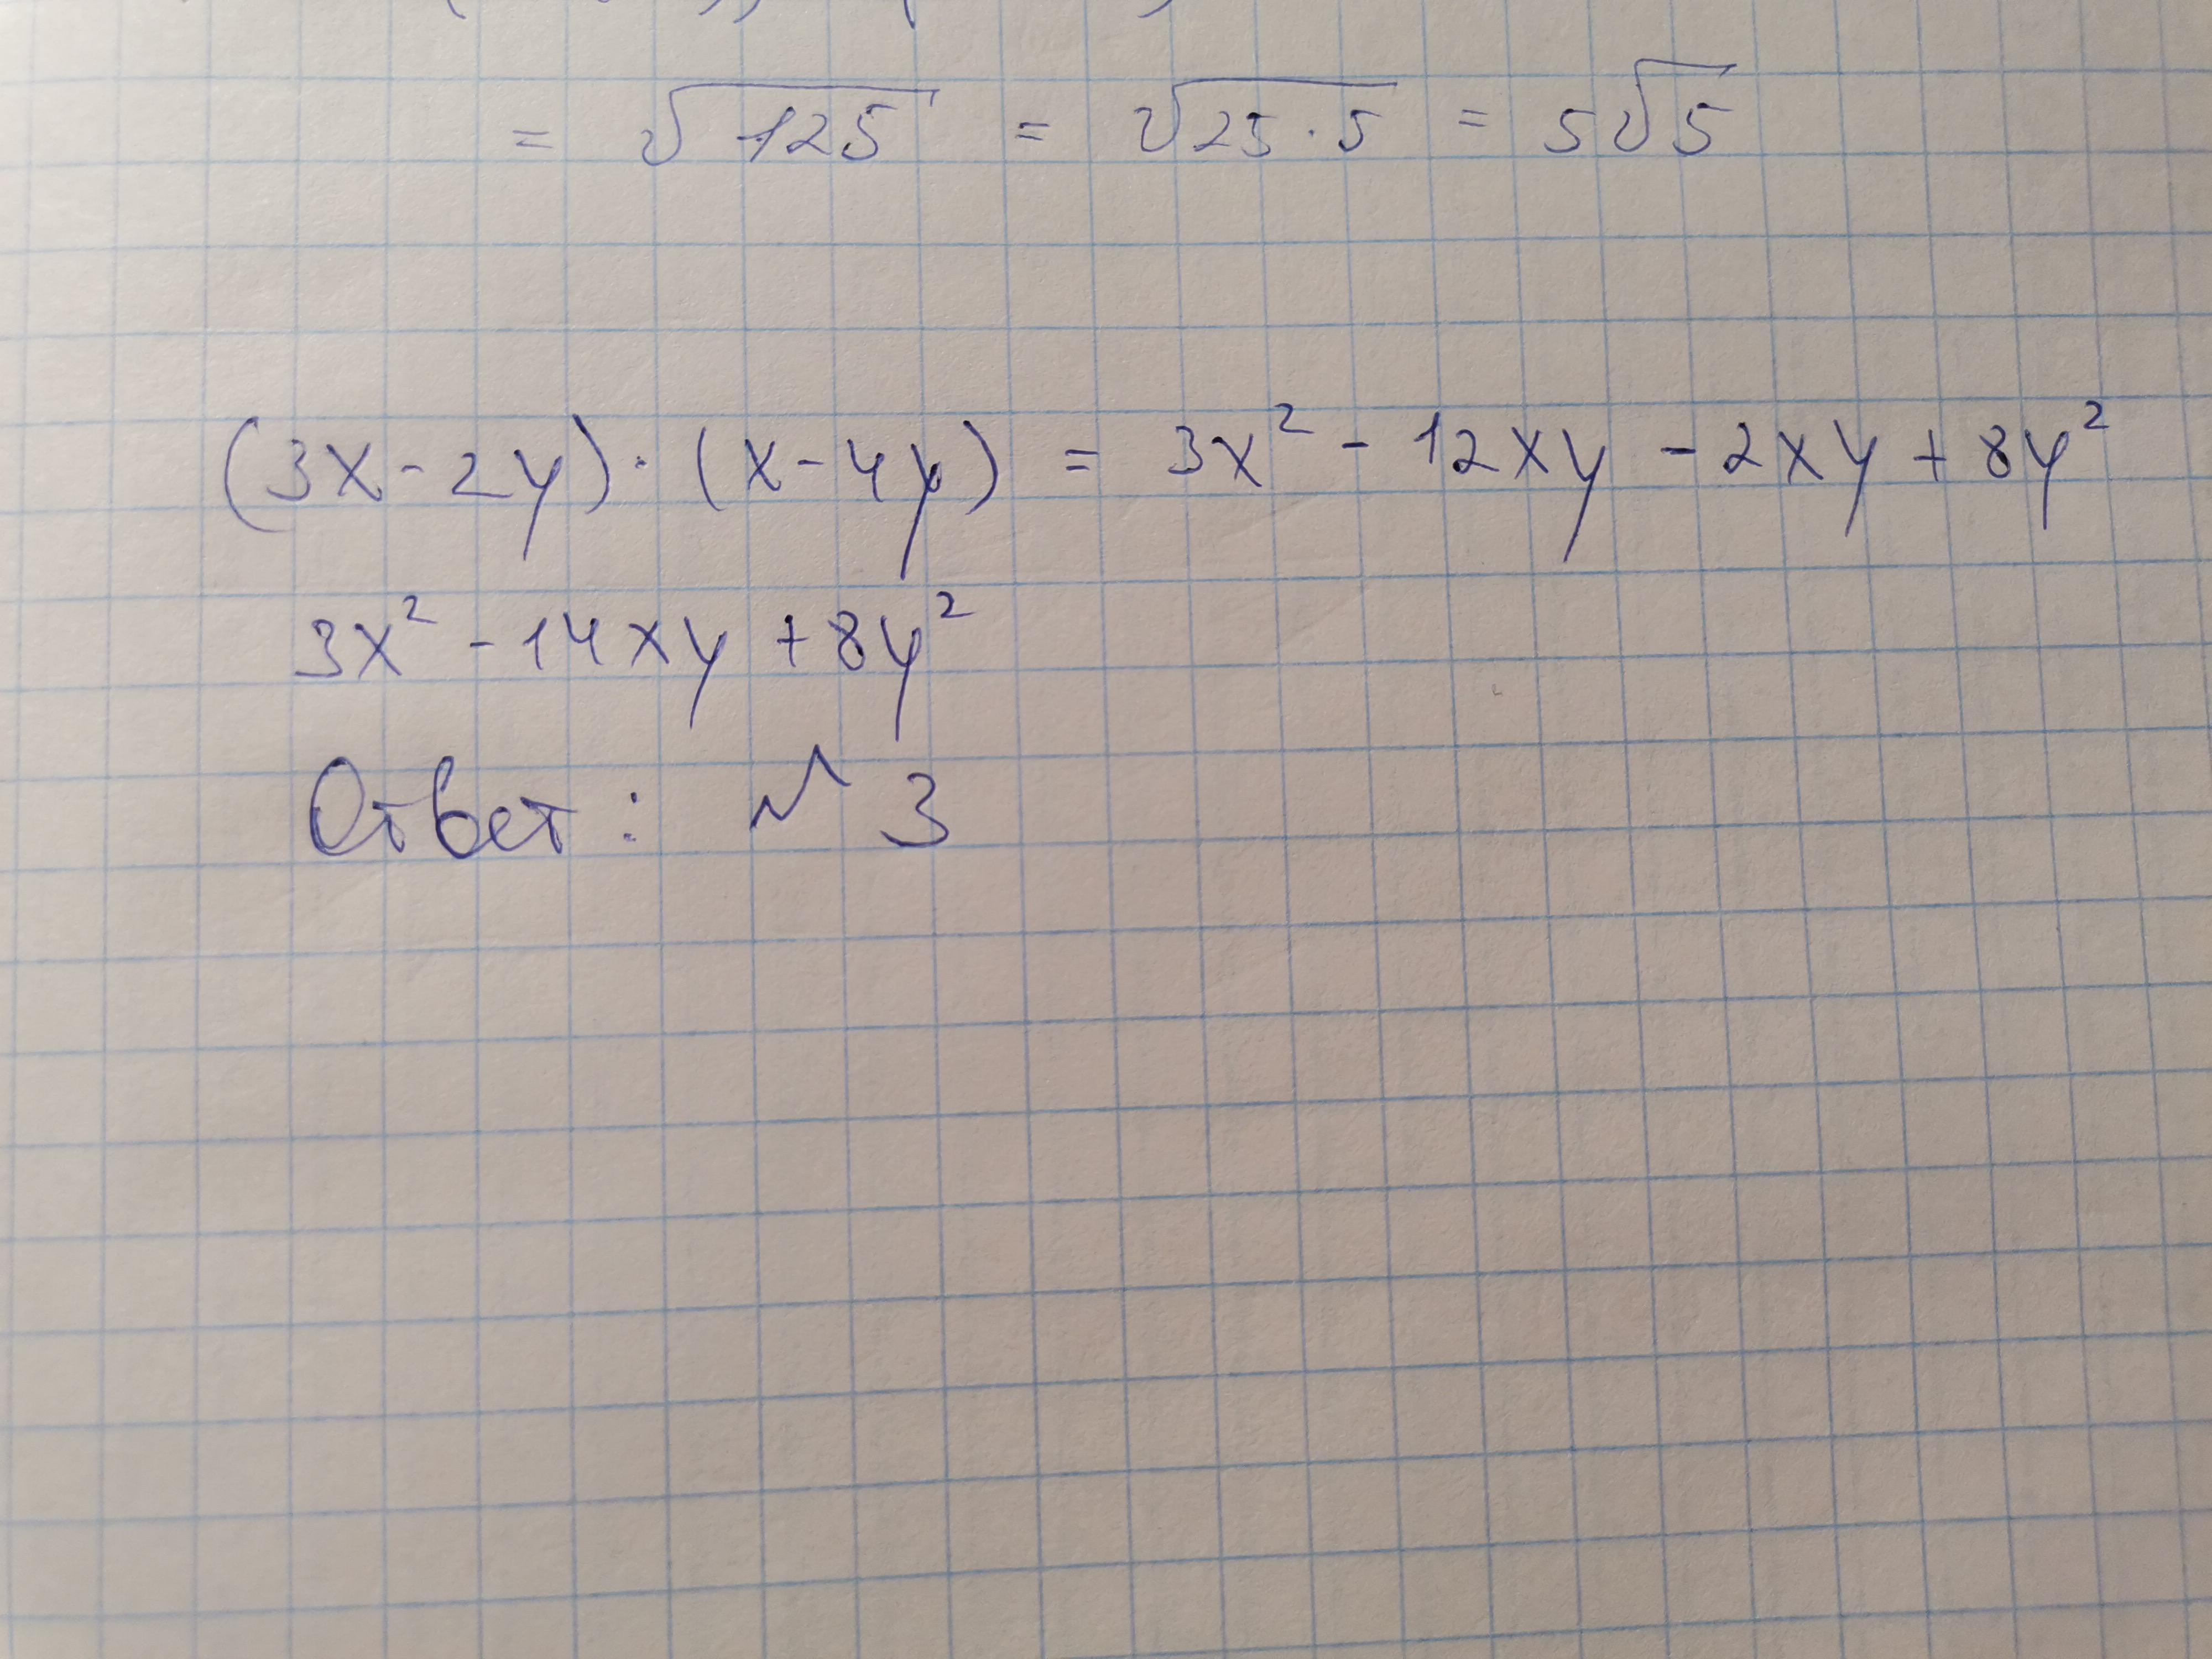 = √125 = √25·5 = 5√5
(3x-2y)·(x-4y) = 3x² - 12xy - 2xy + 8y²
3x² - 14xy + 8y²
Ответ: № 3